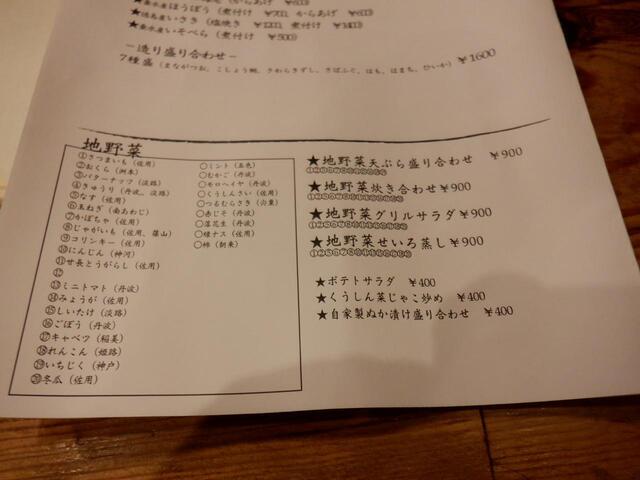 ほうぼう（煮付け ￥700、からあげ ￥600）
いさき（塩焼き ￥1200、煮付け ￥1400）
★垂水産いそべら（煮付け ￥500）
－造り盛り合わせ－
7種盛（まながつお、こしょう鯛、さわらきずし、さばふぐ、はも、はまち、ひいか）￥1600
地野菜
①さつまいも（佐用）
②おくら（洲本）
③バターナッツ（淡路）
④きゅうり（丹波、淡路）
⑤なす（佐用）
⑥玉ねぎ（南あわじ）
⑦かぼちゃ（佐用）
⑧じゃがいも（佐用、篠山）
⑨コリンキー（佐用）
⑩にんじん（神河）
⑪甘長とうがらし（佐用）
⑫
⑬ミニトマト（丹波）
⑭みょうが（佐用）
⑮しいたけ（淡路）
⑯ごぼう（丹波）
⑰キャベツ（稲美）
⑱れんこん（姫路）
⑲いちじく（神戸）
⑳冬瓜（佐用）
○ミント（五色）
○むかご（丹波）
○モロヘイヤ（丹波）
○くうしんさい（佐用）
○つるむらさき（宍粟）
○赤じそ（丹波）
○落花生（丹波）
○緑ナス（佐用）
○柿（朝来）
★地野菜天ぷら盛り合わせ ￥900
★地野菜炊き合わせ￥900
★地野菜グリルサラダ￥900
★地野菜せいろ蒸し￥900
★ポテトサラダ ￥400
★くうしん菜じゃこ炒め ￥400
★自家製ぬか漬け盛り合わせ ￥400